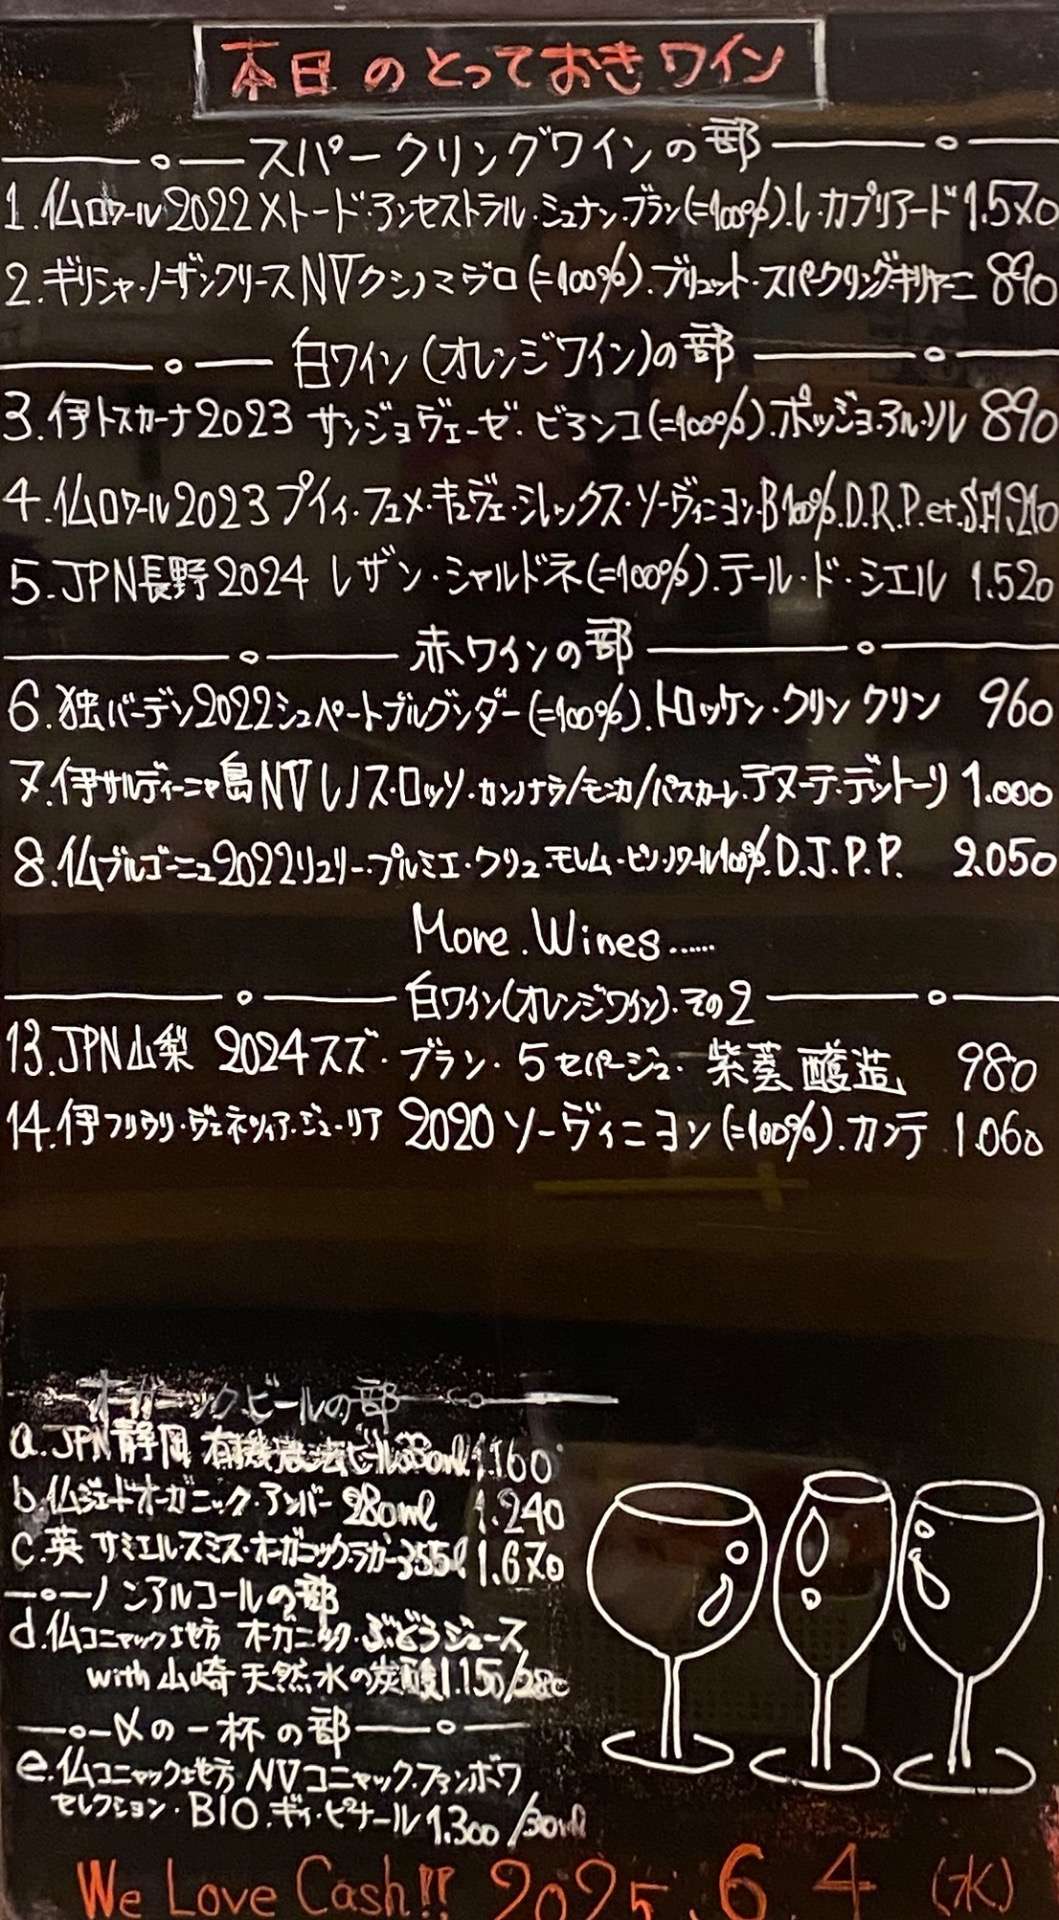 本日のとっておきワイン
スパークリングワインの部
1.仏ロワール2022メトード・アンセストラル・シュナン・ブラン(=100%).レ・カプリアード1.570
2.ギリシャ・ノーザングリースNVクシノマヴロ(=100%).ブリュット・スパークリング・キリヤーニ 890
白ワイン(オレンジワイン)の部
3.伊トスカーナ2023 サンジョヴェーゼ・ビアンコ(=100%).ポッジョ・アル・ソル 890
4.仏ロワール2023プイィ・フュメ・キュヴェ・シレックス・ソーヴィニヨン・B100%.D.R.P.et.S.F1.210
5.JPN長野2024 レザン・シャルドネ(=100%).テール・ド・シエル 1.520
赤ワインの部
6.独バーデン2022シュペートブルグンダー(=100%).トロッケン・クリンクリン 960
7.伊サルディーニャ島NVレノス・ロッソ・カンノナウ/モニカ/パスカーレ.テヌーテ・デットーリ 1.000
8.仏ブルゴーニュ2022リュリー・プルミエ・クリュ・モレム・ピノノワール100%.D.J.P.P. 2.050
More.Wines......
白ワイン(オレンジワイン)・その2
13.JPN山梨 2024スズ・ブラン・5セパージュ・紫雲醸造 980
14.伊フリウリ・ヴェネツィア・ジューリア 2020ソーヴィニヨン(=100%).カンテ 1.060
オーガニックビールの部
a.JPN静岡 有機農法ビール 1.160
b.仏ジェードオーガニック・アンバー 280ml 1.240
c.英 サミエル・スミス・オーガニックラガー355l 1.670
ノンアルコールの部
d.仏コニャック地方 オーガニック・ぶどうジュース
with山崎天然水の炭酸1.150/
〆の一杯の部
e.仏コニャック地方NVコニャック・ファンボワ
セレクション・BIO.ギィ・ピナール1.300/30ml
We Love Cash!! 2025.6.4 (水)